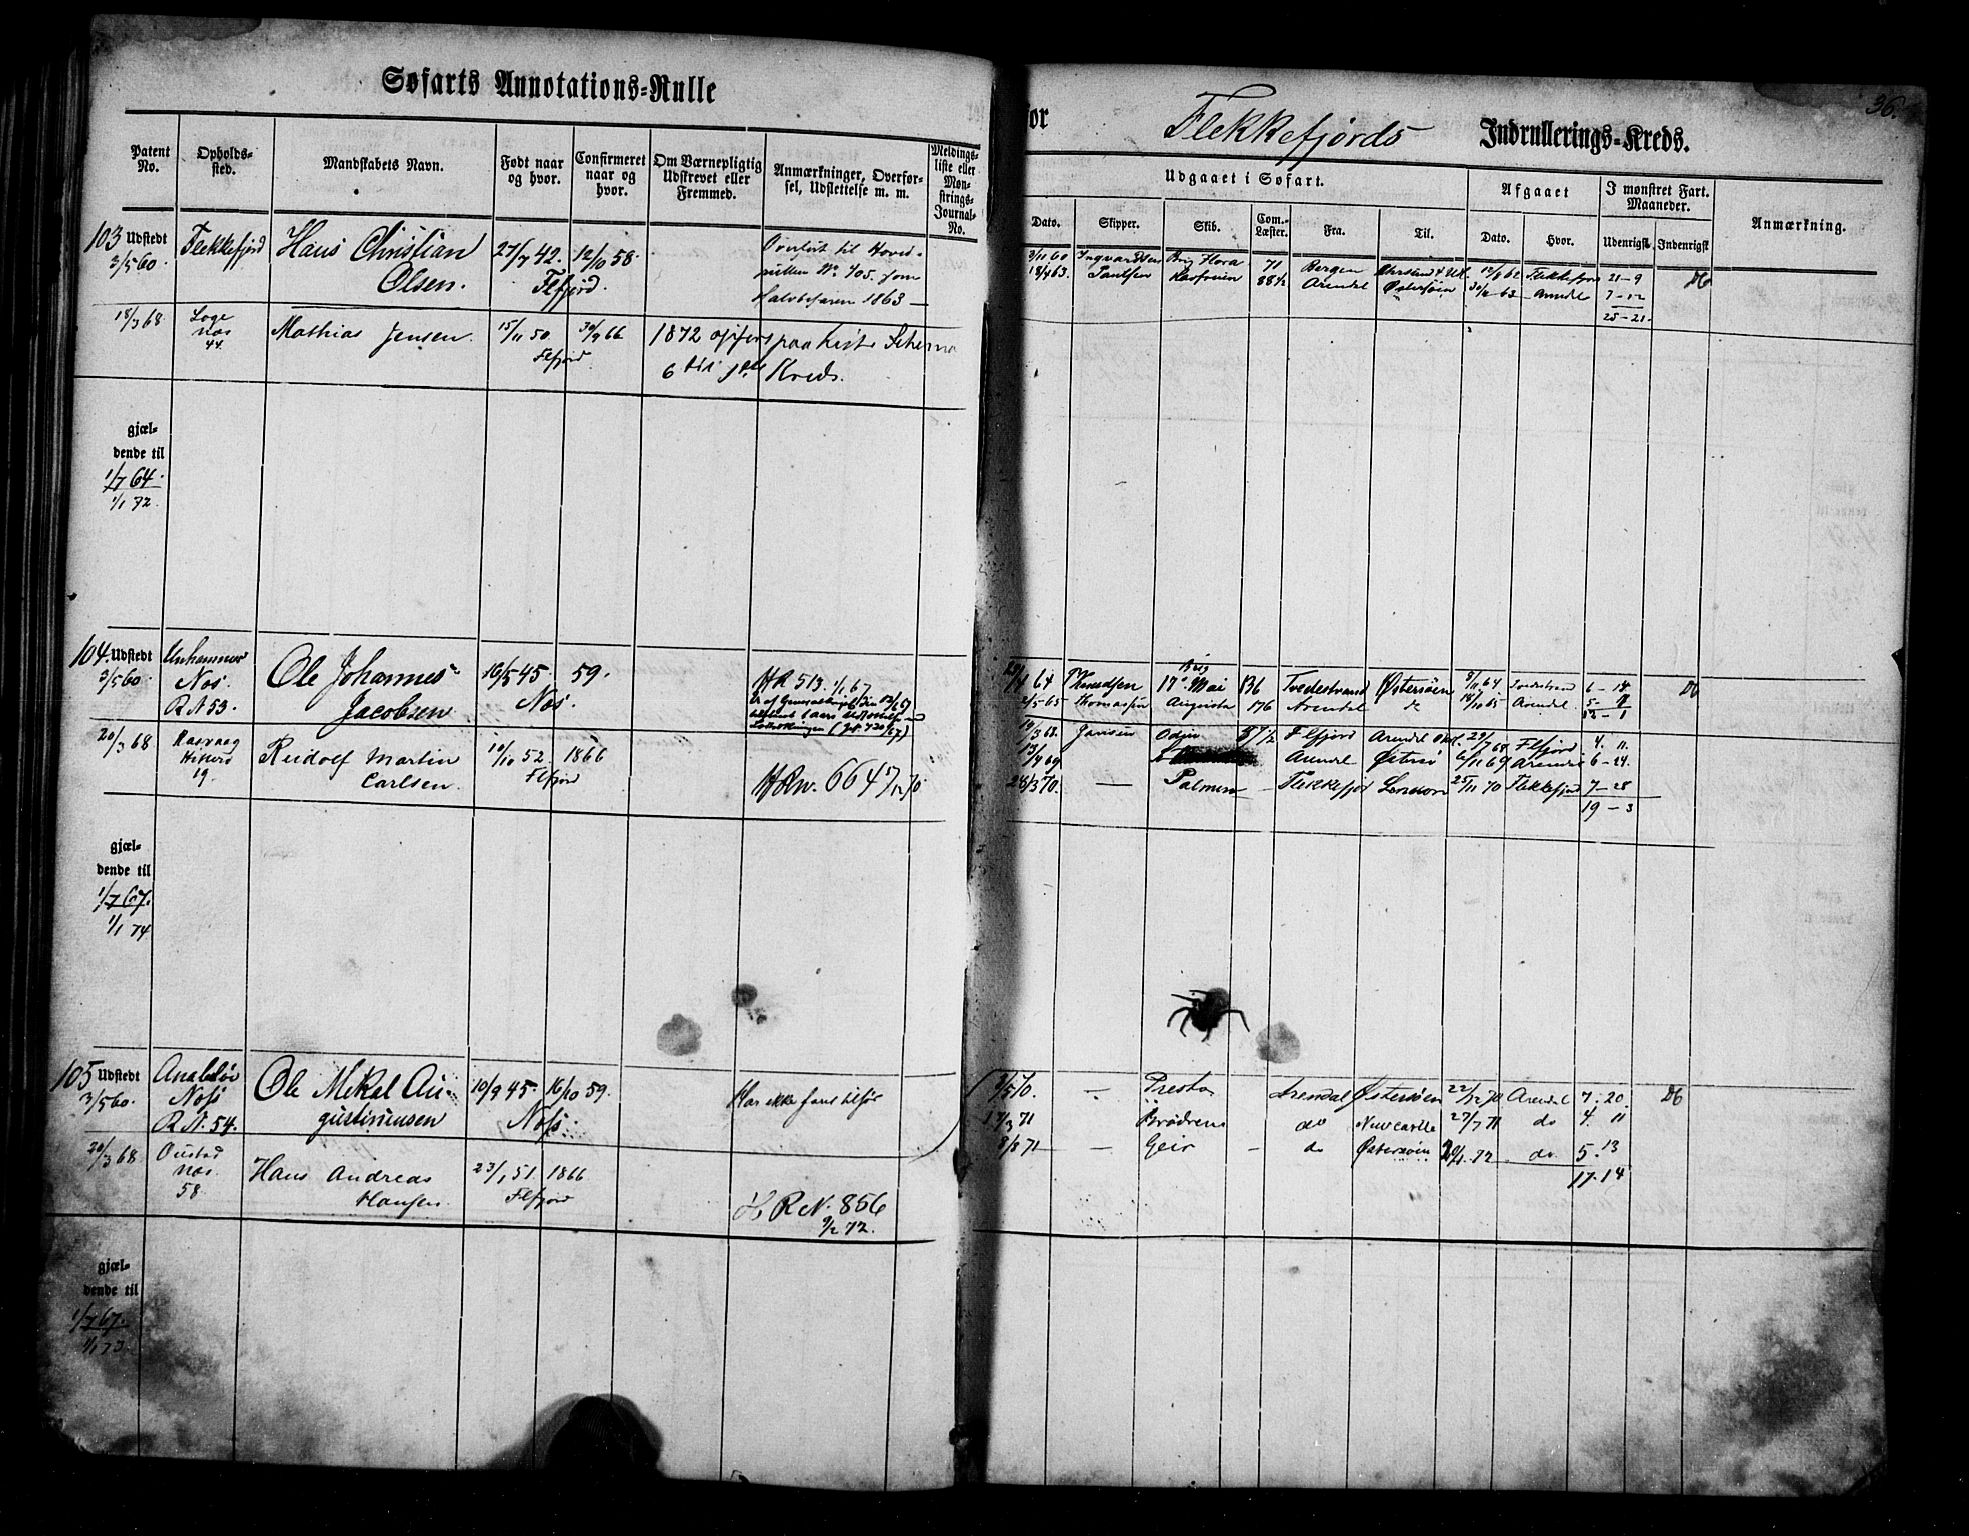 Søfarts Annotations-Rulle
for Flekkefjords Indrullerings-Kreds.
36.
Patent No.
Opholds-sted.
Mandskabets Navn.
Født naar og hvor.
Confirmeret naar og hvor.
Om Værnepligtig Udskrevet eller Fremmed.
Anmærkninger, Overfør-sel, Udslettelse m. m.
Meldings-liste eller Mønstrings-Journal-No.
Udgaaet i Søfart.
Afgaaet
I mønstret Fart. Maaneder.
Anmærkning.
Dato.
Skipper.
Skib.
Com.-Læster.
Fra.
Til.
Dato.
Hvor.
Udenrigsk.
Indenrigsk
103 Udstedt Flekkefjord Hans Christian 27/7 42. 12/10 58.
3/5 60. Olsen. Flfjord.
Overført til Hoved-
rullen No 405. som
Halvbefaren 1863
2/11 60 Ingvardsen Brig Flora 71 Bergen 12/8 62 Flekkefjord 21-9
18/4 63. Paulsen 88½ Arendal Østersøen 30/11 63 Arendal 7-12
25-21.
18/3 68 Loge Mathias Jensen. 15/11 50. 30/9 66 1872 opføres paa Liste Schema
næs Flfjord. 6 til 1ste Kreds.
44.
gjæl-
dende til
1/7 64.
1/1 72.
104. Udstedt Ole Johannes 16/5 45. 59.
3/5 60. Nes. Jacobsen Nes.
R N 53.
HR 513. 1/1 67
64 Knudsen Brig 17de Mai 136 Tvedestrand Østersøen 8/11 64. 6-14
2/5 65 Thomassen Augusta 176 Arendal do 14/10 65 Arendal
20/3 68 Rasvaag Rudolf Martin 10/10 52. 1866
Hiterø Carlsen. Flfjord
19.
HRN. 664
68. Jansen Odin 57½ Flfjord Arendal 29/7 68 Flfjord 4. 11.
13/4 69 Arendal Østersø 6/11 69 Arendal 6-24.
28/3 70. — Palmen — Flekkefjord London 25/11 70 Flekkefjord 7-28
19-3
gjæl-
dende til
1/7 67.
1/1 74
105 Udstedt Anabeløe Ole Mekal Au- 10/9 45. 16/10 59.
3/5 60. Næs gustinusen Næs
R N. 54.
Har ikke faret tilsøs
9/5 70. — Presto Arendal Østersøen 22/12 70 Arendal 7. 20.
17/3 71 Brødrene do Newcastle 27/7 71 do 4. 11
8/8 71 — Geir — do Østersøen 72 do 5. 13
17. 14
20/3 68 Hans Andreas 23/1 51. 1866
næs Hansen. Flfjord
58
H R N. 856
9/2 72.
gjæl-
dende til
1/7 67.
1/1 73.